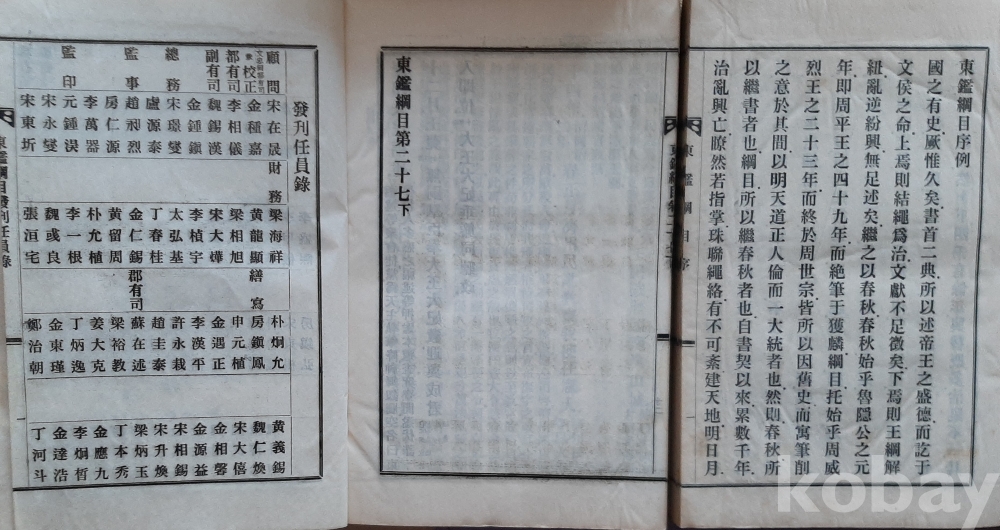 東鑑綱目序例
國之有史厥惟久矣書首二典所以述帝王之盛德而訖于
文侯之命上焉則結繩爲治文獻不足徵矣下焉則王綱解
紐亂逆紛興無足述矣繼之以春秋春秋始乎魯隱公之元
年即周平王之四十九年而絶筆于獲麟綱目托始乎周威
烈王之二十三年而終於周世宗皆所以因舊史而寓筆削
之意於其間以明天道正人倫而一大統者也然則春秋所
以繼書者也綱目所以繼春秋者也自書契以來累數千年
治亂興亡瞭然若指掌珠聯繩絡有不可紊建天地明日月
東鑑綱目序
東鑑綱目第二十七下
發刊任員錄
顧問 宋在晟 財務 梁海祥 朴炯允 黃義錫
校正 金種嘉 黃龍顯 繕寫 房鎭鳳 魏仁煥
都有司 李相儀 梁相旭 申元植 宋大僖
副有司 魏錫漢 宋大燁 金遇正 金相馨
金鍾鎭 李楨宇 李漢平 金源益
總務 宋璟燮 太弘基 許永栽 宋相錫
盧源泰 丁春桂 趙圭泰 宋升煥
監事 趙 烈 金仁錫 郡有司 蘇在述 梁炳玉
房仁源 黃留周 梁裕教 丁本秀
李萬器 朴允植 姜大克 金應九
監印 元鍾淏 李一根 丁炳逸 李炯晳
宋永燮 魏或良 金東瑾 金達浩
宋東圻 張洹宅 鄭治朝 丁河斗
東鑑綱目發刊任員錄
kobay